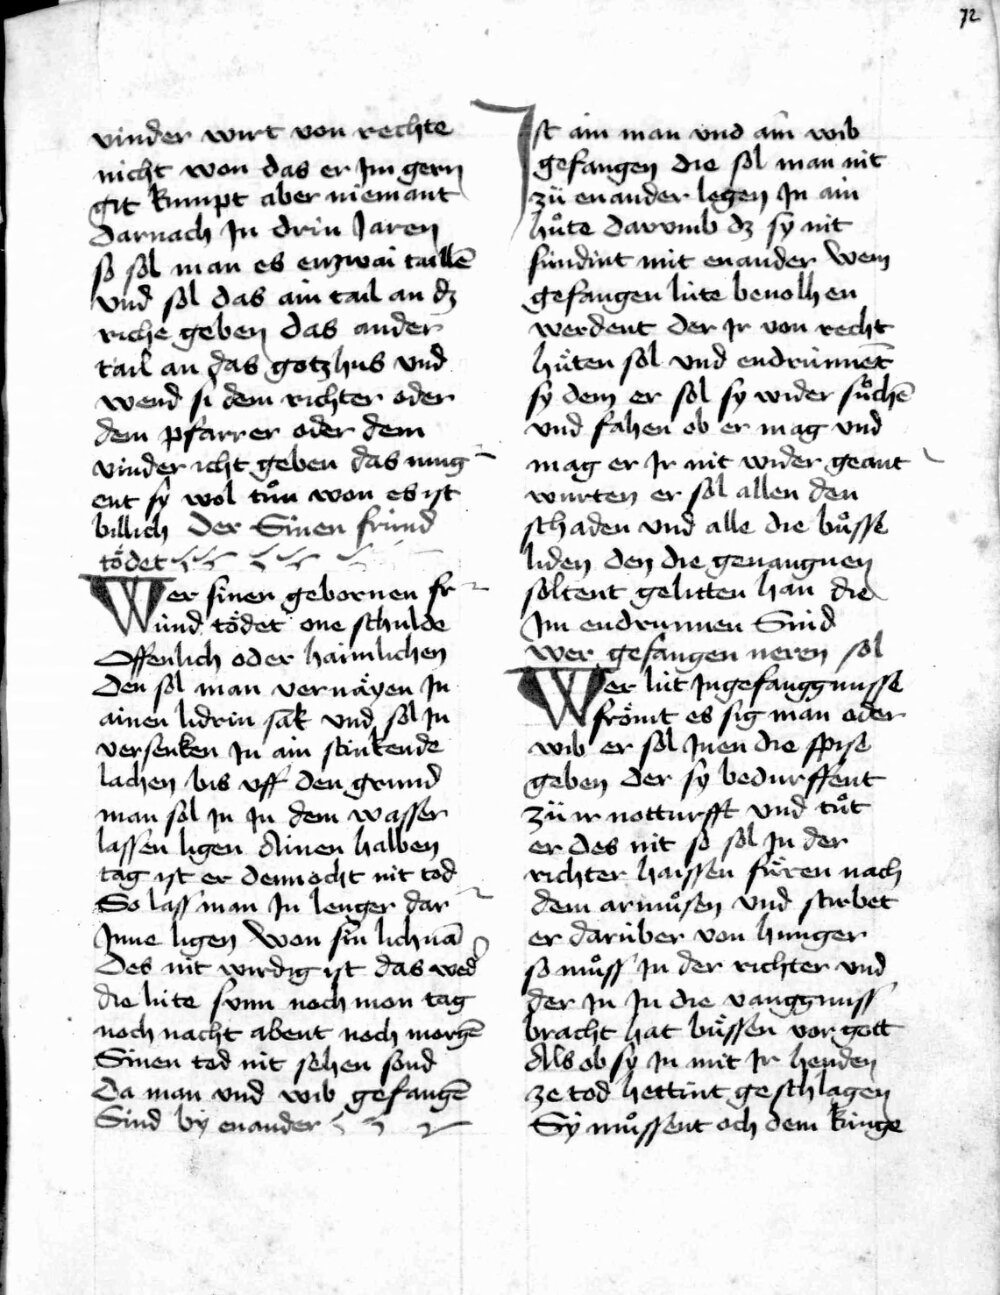 72
vinder wirt von rechte
nicht won das er Im gern
git kumpt aber niemant
Darnach In drin Jaren
so sol man es enzwai taillē
Vnd sol das ain tail an dz
riche geben das ander
tail an das gotzhus vnd
wend si dem richter oder
dem pfarrer oder dem
vinder icht geben das mug
ent sy wol tůn won es ist
billich Der Sinen frund
tödet
Wer sinen gebornen fr
ünd tödet one schulde
Offenlich oder haimlichen
Den sol man vernäyen In
ainen lidrin sak vnd sol In
versenken In ain stinkende
lachen bis vff den grund
man sol In In dem wasser
lassen ligen Ainen halben
tag ist er dennocht nit tod
So lass man In lenger dar
Inne ligen Won sin lichnā
Des nit wirdig ist das wed
die lüte sunn noch mon tag
noch nacht abent noch morgē
Sinen tod nit sehen sond
Da man vnd wib gefangē
Sind by enander
Ist ain man vnd ain wib
gefangen die sol man nit
zü enander legen In ain
hůte darumb dz sy nit
sündint mit enander Wem
gefangen lüte beuolhen
werdent der Ir von recht
hüten sol vnd endrünnēt
sy dem er sol sy wider sůchē
vnd fahen ob er mag vnd
mag er Ir nit wider geant
wurten er sol allen den
schaden vnd alle die bůsse
liden den die geuangnen
soltent gelitten han die
Im endrunnen Sind
wer gefangen neren sol
Wer lüt Ingefanggnusse
frömt es sig man oder
wib er sol Inen die spise
geben der sy bedurffent
zü ir notturfft vnd tůt
er des nit so sol In der
richter haissen füren nach
dem armůsen vnd stirbet
er darüber von hunger
so můss In der richter vnd
der In In die vanggnuss
bracht hat büssen vor gott
Als ob sy In mit Ir henden
ze tod hettint geschlagen
Sy můssent och dem künge